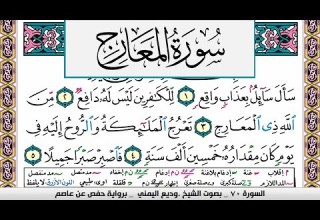 سورة المعارج
سَأَلَ سَآئِلٌۢ بِعَذَابٍ وَاقِعٍ ١ لِّلْكَٰفِرِينَ لَيْسَ لَهُۥ دَافِعٌ ٢ مِّنَ
ٱللَّهِ ذِى ٱلْمَعَارِجِ ٣ تَعْرُجُ ٱلْمَلَٰٓئِكَةُ وَٱلرُّوحُ إِلَيْهِ فِى
يَوْمٍ كَانَ مِقْدَارُهُۥ خَمْسِينَ أَلْفَ سَنَةٍ ٤ فَٱصْبِرْ صَبْرًا جَمِيلًا ٥
السورة ٧٠ - بصوت الشيخ وديع اليمني - برواية حفص عن عاصم